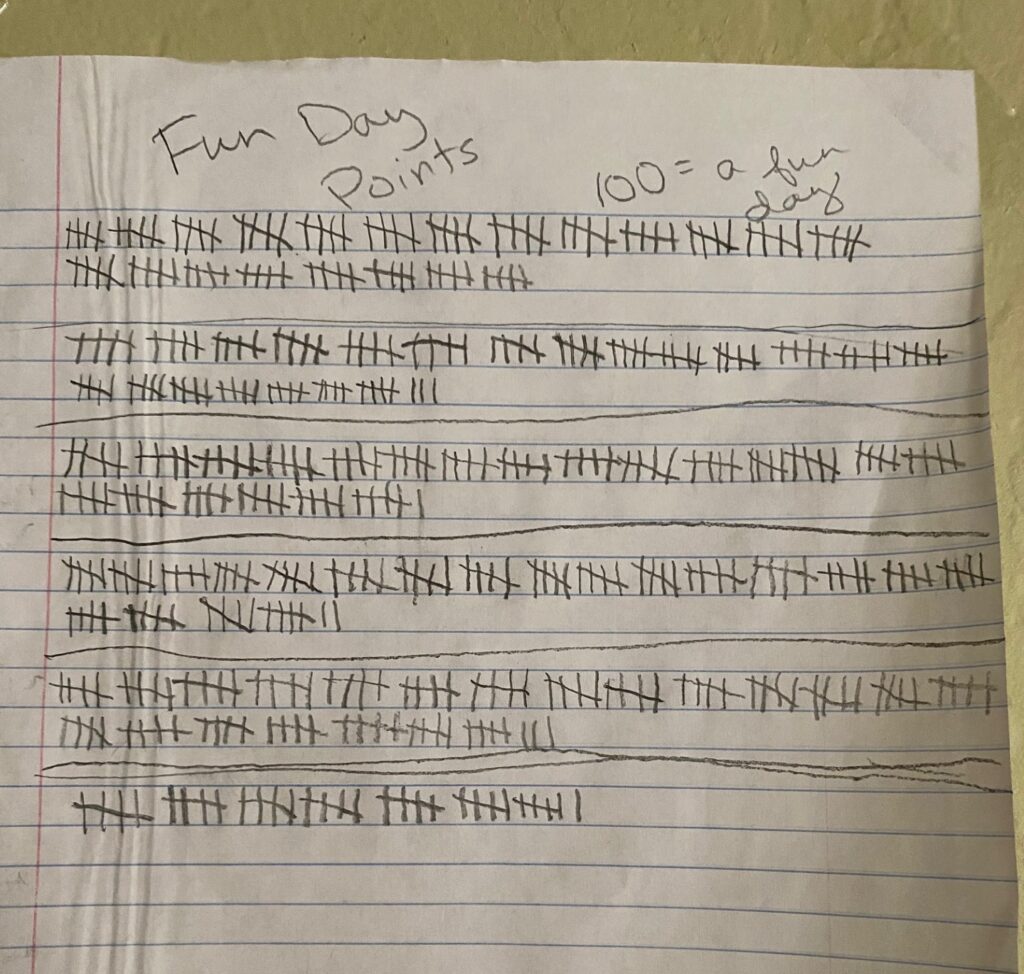 Fun Day
Points
100 = a fun
day